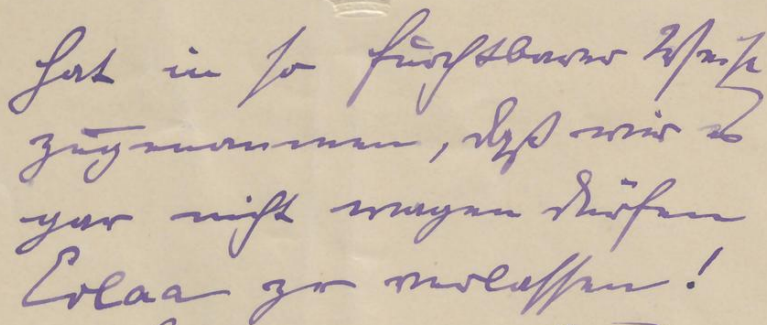 hat in so furchtbarer Weise
zugenommen, daß wir es
gar nicht wagen dürfen
Erlaa zu verlassen!